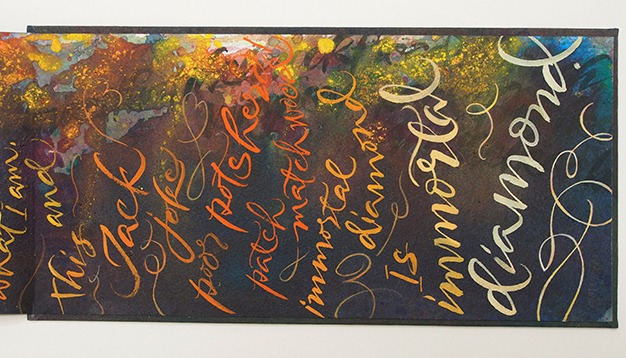 what I am,
and
This
Jack
joke
poor potsherd
patch
matchwood
immortal
diamond
Is
immortal
diamond.